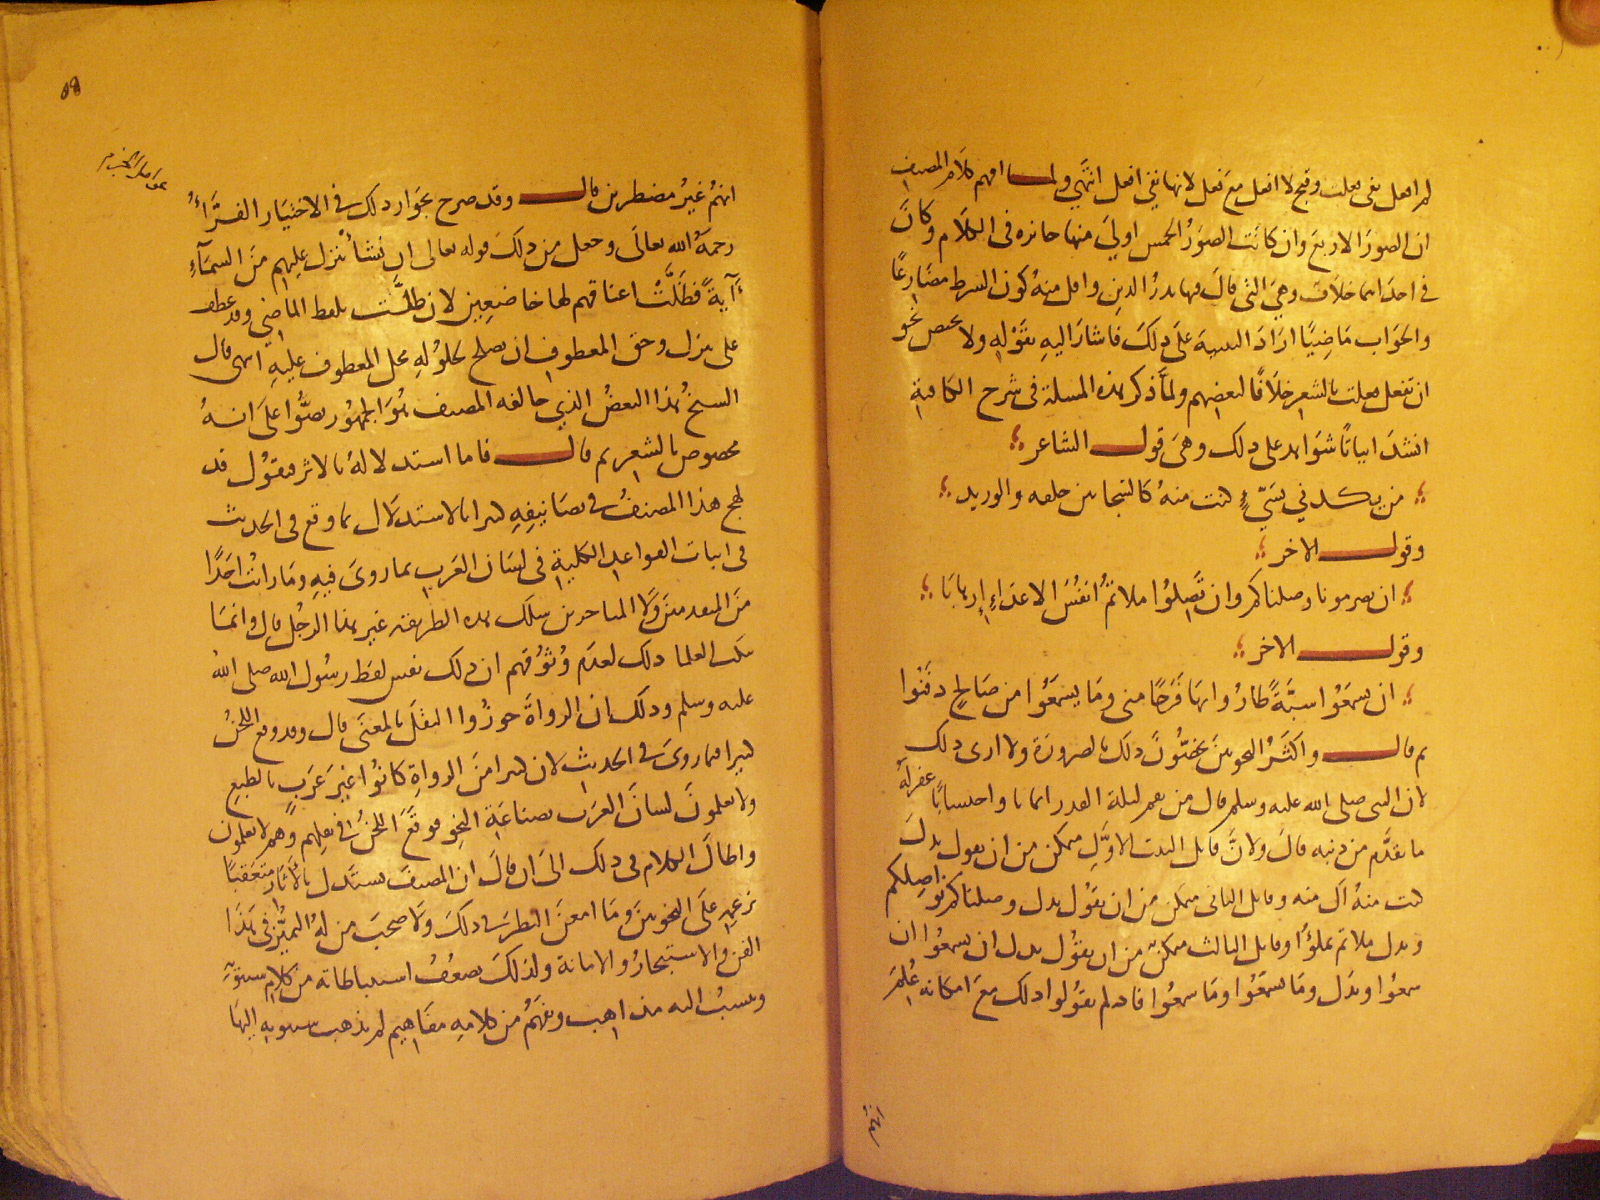 لم افعل نفى فعلت وقبح لا افعل مع فعل لانها نفى افعل انتهى ولما افهم كلام المصنف
ان الصور الاربع وان كانت الصور الخمس اولى منها جائزه فى الكلام وكان
فى احداها خلاف وهى التى قال فيها بدر الدين واقل منه كون الشرط مضارعًا
والجواب ماضيًا اراد التنبيه على ذلك فاشار اليه بقوله ولا يختص نحو
ان تفعل فعلت بالشعر خلافًا لبعضهم ولما ذكر هذه المسئلة فى شرح الكافية
انشد ابياتًا شواهد على ذلك وهى قول الشاعر
من يكدنى بسَيّءٍ كنت منه كالشجا بين حلقه والوريد
وقول الاخر
ان تصرمونا وصلناكم وان تَصِلُوا ملاتمُ انفُسَ الاعدَاءِ إرهابَا
وقول الاخر
ان يسمعُوا سبَّةً طارُوا بها فَرَحًا منى وما يسمعُوا من صَالحٍ دفَنُوا
ثم قال واكثر النحويين يخصّون ذلك بالضرورة ولا ارى ذلك
لان النبى صلى الله عليه وسلم قال من يقم ليلة القدر ايمانا واحتسابًا غفر له
ما تقدَّم من ذنبه قال ولانَّ قايل البيت الاوَّل ممكن من ان يقول بدل
كنت منهُ اَك منه وقايل الثانى ممكن من ان يقول بدل وصلناكم نواصلكم
وبدل ملاتم تملؤُا وقايل الثالث ممكنٌ من ان يقُول بدل ان يسمعُوا ان
سمعُوا وبدل وما يسمَعُوا وما سمعُوا فاذ لم يقُولوا ذلك مع امكانه عُلِمَ
انهم
٥٩
انهُم غيرُ مضطرين قال وقد صرح بجواز ذلك فى الاختيار الفرَّاءُ
رحمهُ الله تعالى وجعل من ذلك قوله تعالى ان نشأ ننزل عليهم من السمآءِ
آيةً فظلَّتْ اعناقهم لها خاضعِين لان ظلّت بلفظ الماضى وقد عطف
على ننزل وحق المعطوف ان يصلح لحلوله محل المعطوف عليه انتهى قال
الشيخُ هذا البعضُ الذى خالفه المصنف هُوَ الجمهُور نصُّوا على انهُ
مخصوص بالشعر ثم قال فاما استدلالهُ بالاثر فنقُول قد
لهج هذا المصنفُ فى تصانيفِهِ كثيرا بالاستدلال بما وقع فى الحديث
فى اثبات القواعد الكلية فى لسَان العَرَب بما روىَ فيهِ ومَا راَيتُ احَدًا
منَ المتقدمينَ ولَا المتاخرين سلك هذه الطريقة غير هذا الرجُل قال وانمَا
تنكب العلما ذلك لعدَم وُثوُقهم ان ذلك نفس لفظ رسُول الله صلى الله
عليه وسلم وذلك ان الرواةَ جوزُوا النقلَ بالمعنَى قال وقد وقع اللحنُ
كثيرا فيما روىَ فى الحديث لان كثيرا منَ الرواةِ كانُوا غيرَ عَرَبٍ بالطبع
ولا يعلمونَ لسانَ العرَب بصناعَةِ النحو فوقَعَ اللحنُ فى نقلهم وَهم لا يعلمون
واطالَ الكلام فى ذلك الىَ ان قالَ ان المصنفَ يستدل بالاثار متعَقبًا
بزعمِهِ علىَ النحويينَ ومَا امعنَ النظرَ فى ذلكَ ولَا صحبَ من لهُ التميُّز فى هَذَا
الفن والاستبحارُ والامانة ولذلكَ تضعُفُ استنباطاته من كلام سيبَويه
وينسبُ اليه مذاهب ويفهَمُ من كلامِهِ مفاهيم لم يذهب سيبويه اليهَا